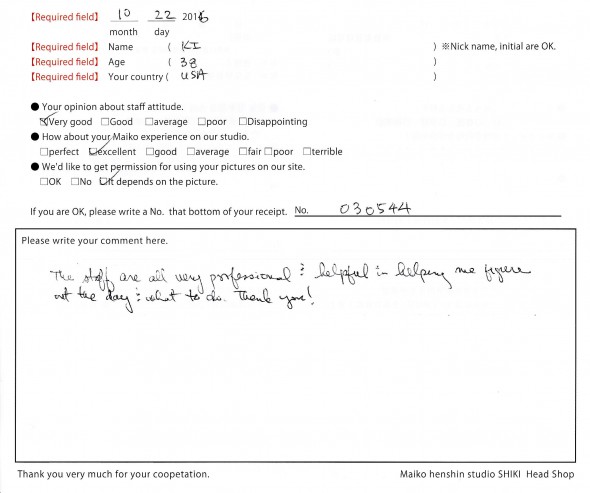 【Required field】 10 22 2016
month day
【Required field】 Name ( KI ) ※Nick name, initial are OK.
【Required field】 Age ( 38 )
【Required field】 Your country ( USA )
● Your opinion about staff attitude.
☑Very good □Good □average □poor □Disappointing
● How about your Maiko experience on our studio.
□perfect ☑excellent □good □average □fair □poor □terrible
● We'd like to get permission for using your pictures on our site.
□OK □No ☑It depends on the picture.
If you are OK, please write a No. that bottom of your receipt. No. 030544
Please write your comment here.
The staff are all very professional & helpful in helping me figure
out the day & what to do. Thank you!
Thank you very much for your coopetation. Maiko henshin studio SHIKI Head Shop